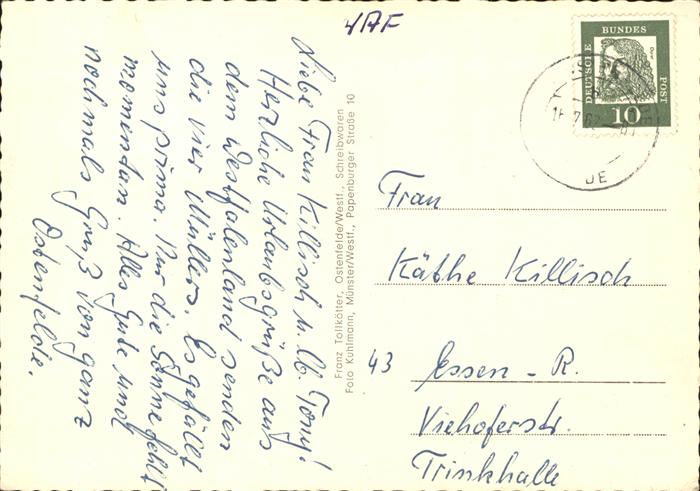 YAF
Liebe Frau Killisch u. lb. Tony!
Herzliche Urlaubsgrüße aus
dem Westfalenland senden
die vier Müllers. Es gefällt
uns prima. Nur die Sonne fehlt
momentan. Alles Gute und
nochmals Gruß von ganz
Ostenfelde.
Franz Tollkötter, Ostenfelde/Westf., Schreibwaren
Foto Kuhlmann, Münster/Westf., Papenburger Straße 10
DEUTSCHE BUNDES POST
Dürer
10
Frau
Käthe Killisch
43 Essen - R.
Viehoferstr.
Trinkhalle